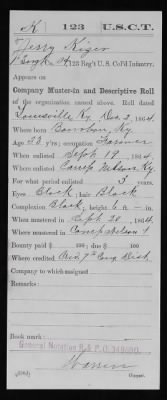 K 123 U.S.C.T.
Jerry Kiger
Serg't, Co. H, 123 Reg't U. S. Col'd Infantry.
Appears on
Company Muster-in and Descriptive Roll
of the organization named above. Roll dated
Louisville Ky. Dec. 2, 1864.
Where born Bourbon, Ky.
Age 23 y'rs; occupation Farmer
When enlisted Sept 19, 1864.
Where enlisted Camp Nelson Ky.
For what period enlisted 3 years.
Eyes Black; hair Black
Complexion Black; height 6 ft. — in.
When mustered in Sept 28, 1864.
Where mustered in Camp Nelson
Bounty paid $ 100; due $ 100
Where credited
Company to which assigned
Remarks:
Book mark:
General Notation R. & P. O.
Warren
Copyist.